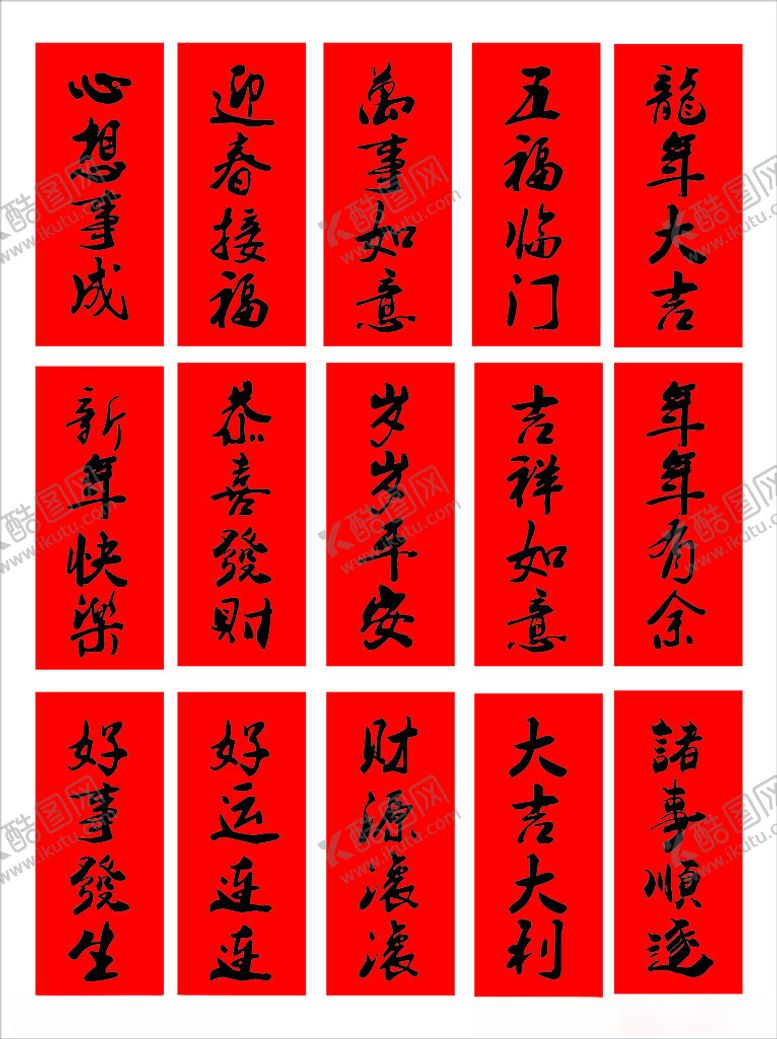 心想事成
迎春接福
萬事如意
五福临门
龍年大吉
新年快樂
恭喜發財
岁岁平安
吉祥如意
年年有余
好事發生
好运连连
財源滚滚
大吉大利
諸事順遂
酷图网
www.ikutu.com